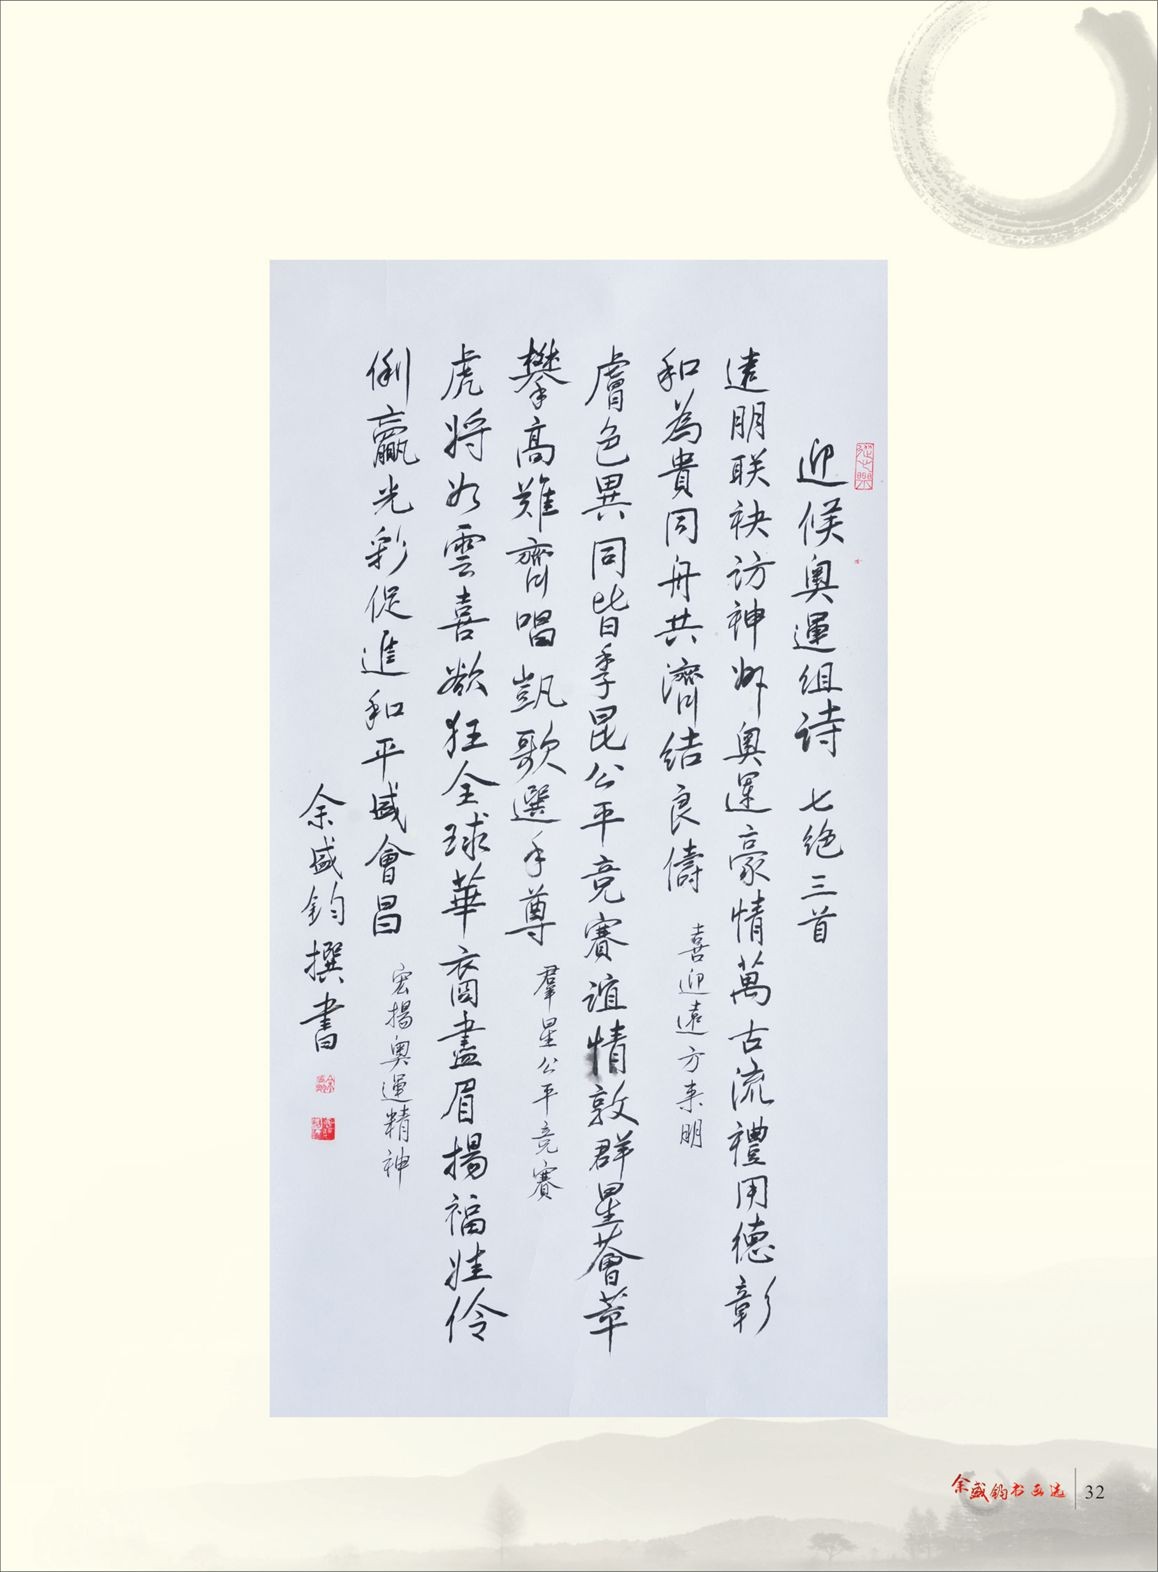 迎候奧運組詩 七绝三首
遠朋联袂访神州奧運豪情萬古流禮用德彰
和為貴同舟共濟结良儔 喜迎遠方来朋
膚色異同皆季昆公平竞賽谊情敦群星薈萃
攀高難齊唱凱歌選手尊 羣星公平竞賽
虎將如雲喜欲狂全球華裔盡眉揚福娃伶
俐贏光彩促進和平盛會昌 宏揚奧運精神
余盛鈞撰書
余盛钧书画选 32